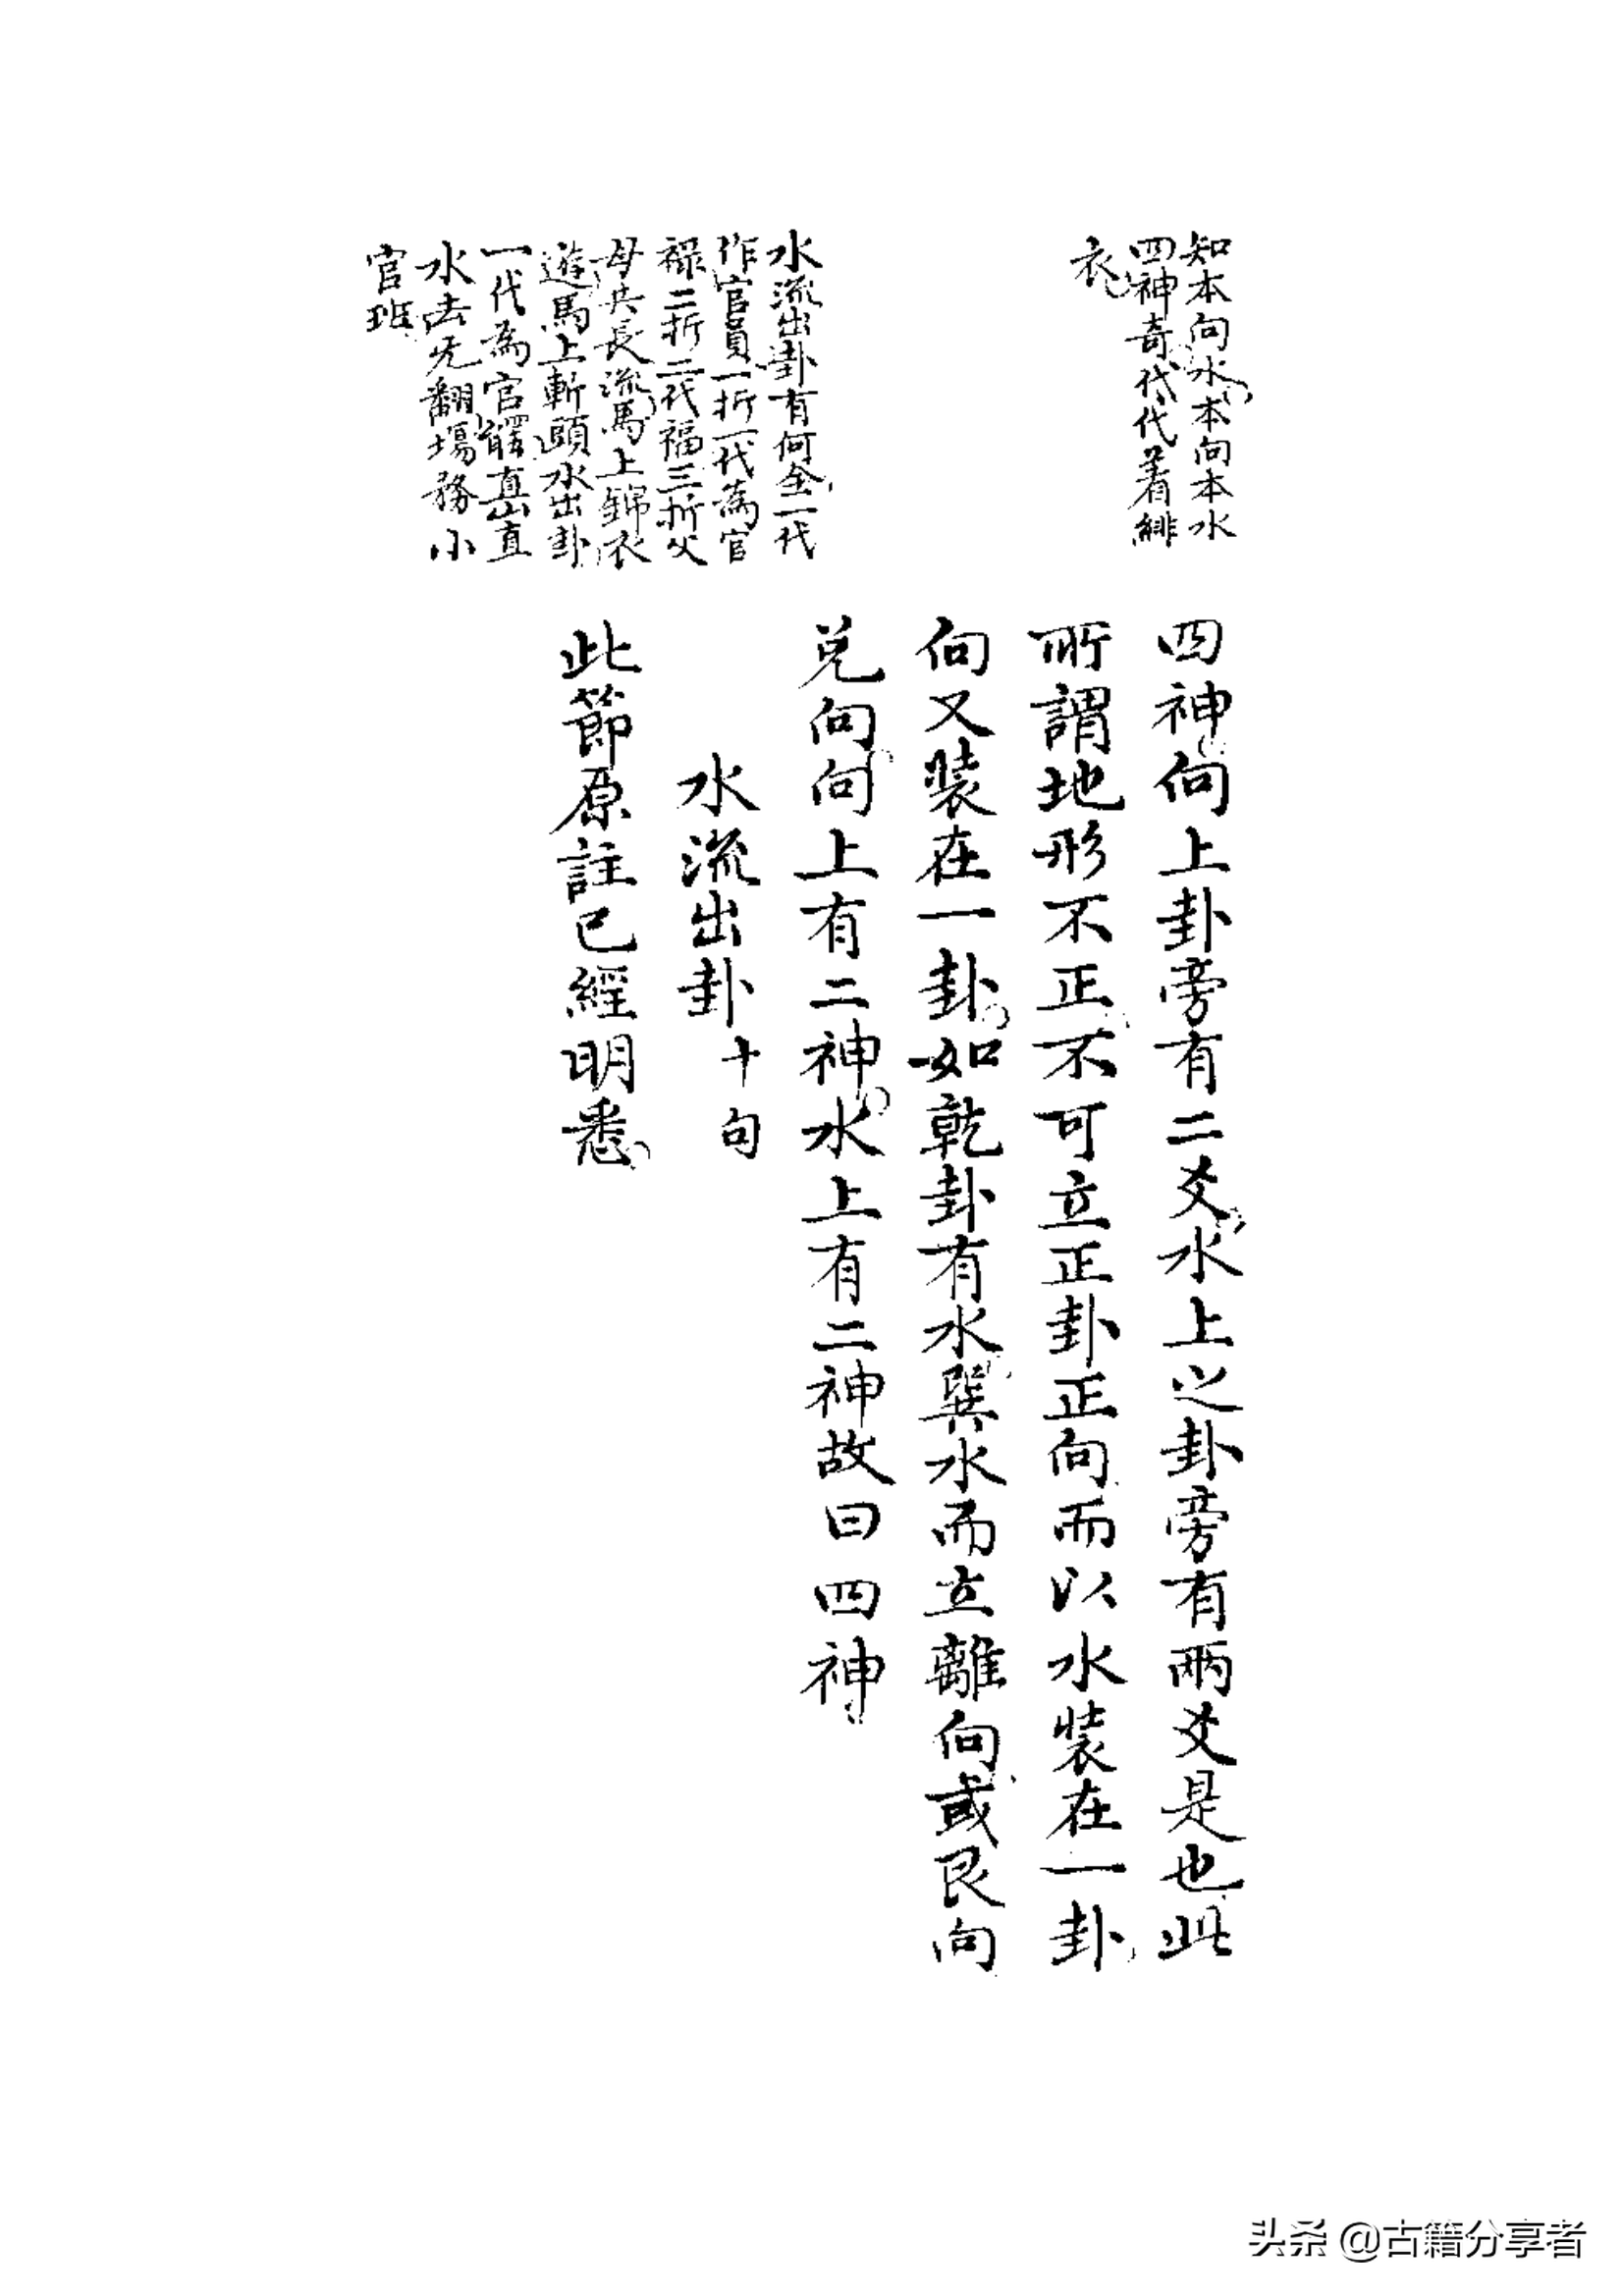 知本向水本向本水
四神奇代代着緋
衣
四神向上卦旁有二爻水上之卦旁有兩爻是也此
所謂地形不正不可立正卦正向而以水装在一卦
向又装在一卦如乾卦有水巽水而立離向或艮向
兌向向上有二神水上有二神故曰四神
水流出卦有何全一代
作官員一折一代為官
禄二折二代福三折父
母共長流馬上錦衣
遊馬上斬頭水出卦
一代為官罷直山直
水去无翻塲務小
官班
水流出卦十句
此節原註已經明悉
头条 @古籍分享者